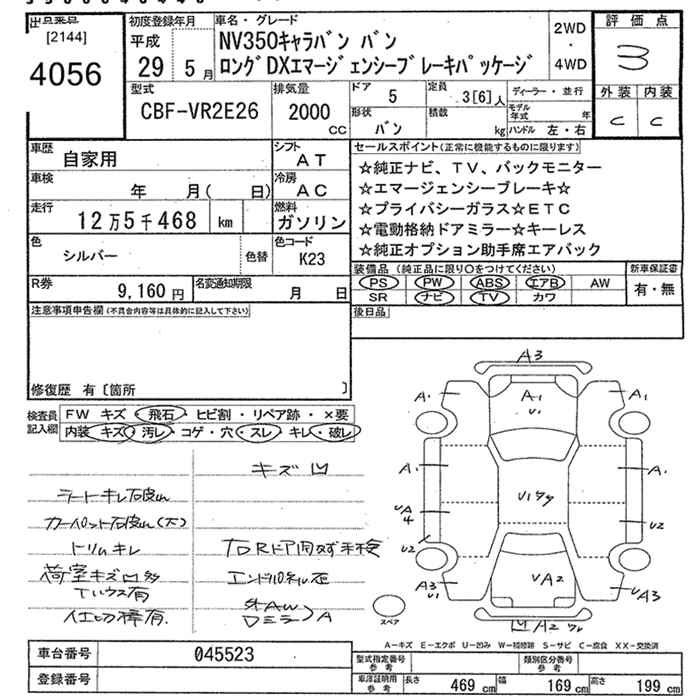 出品番号
[2144]
4056
初度登録年月
平成
29 5月
車名・グレード
NV350キャラバン バン
ロングDXエマージェンシーブレーキパッケージ
2WD
・
4WD
評価点
3
外装 内装
C C
型式
CBF-VR2E26
排気量
2000
CC
ドア
5
形状
バン
定員
3[6]人
積数
kg
ディーラー・並行
モデル年式 年
ハンドル 左・右
車歴
自家用
シフト
AT
車検
年 月( 日)
冷房
AC
走行
12万5千468 km
燃料
ガソリン
色
シルバー
色替
色コード
K23
R券
9,160円
名変通知期限
月 日
セールスポイント(正常に機能するものに限ります)
☆純正ナビ、TV、バックモニター
☆エマージェンシーブレーキ☆
☆プライバシーガラス☆ETC
☆電動格納ドアミラー☆キーレス
☆純正オプション助手席エアバック
装備品 (純正品に限り○をつけてください)
PS PW ABS エアB AW
SR ナビ TV カワ
新車保証書
有・無
後日品
注意事項申告欄(不具合内容等は具体的に記入して下さい)
修復歴 有〔箇所 〕
検査員
記入欄
FW キズ・飛石・ヒビ割・リペア跡・×要
内装 キズ・汚レ・コゲ・穴・スレ・キレ・破レ
キズ 凹
シートキレ破れ
カーペット破れ(大)
トリムキレ
荷室キズ凹多
Tハウス有
A3
A1
U1
A1
A1
A1
A1
UA
4
U2
U2
A3
U1
UA3
UA2
A2
スペア
A-キズ E-エクボ U-凹み W-補修跡 S-サビ C-腐食 XX-交換済
車台番号
045523
登録番号
型式指定番号
参考
類別区分番号
参考
車庫証明用
参考
長さ 469cm 幅 169cm 高さ 199cm